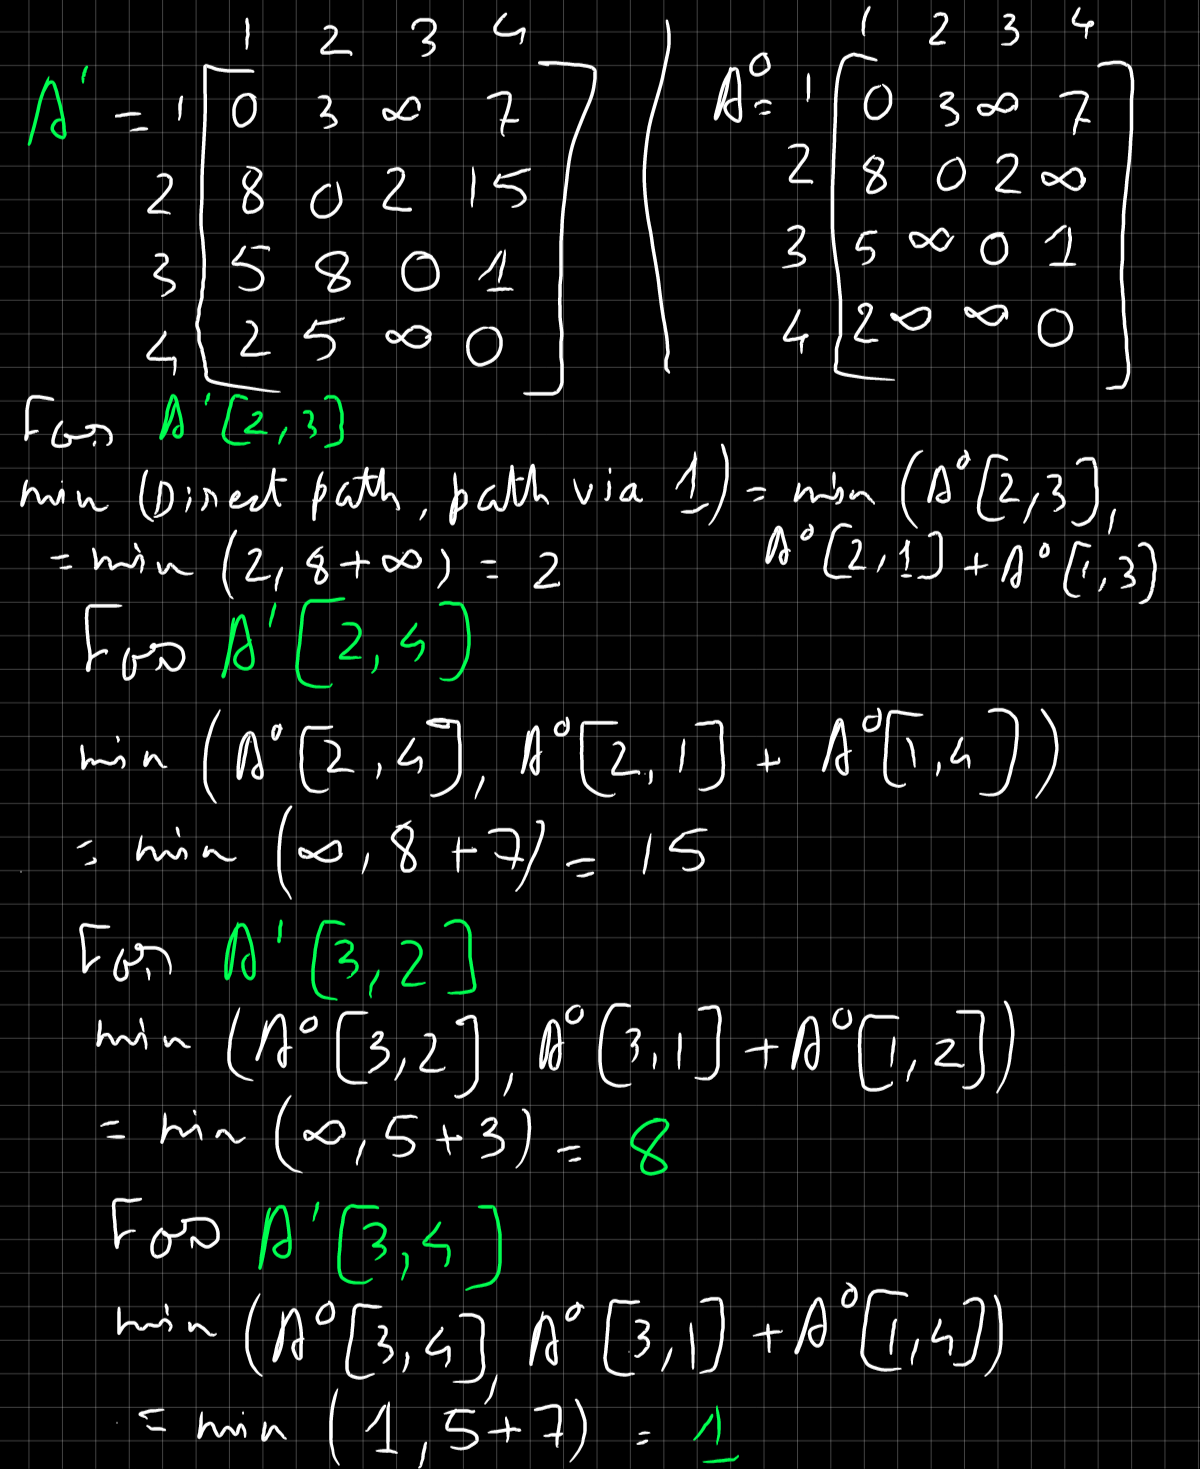 1 2 3 4 | 1 2 3 4
A' = 1 [ 0 3 ∞ 7 ] | A⁰ = 1 [ 0 3 ∞ 7 ]
2 [ 8 0 2 15 ] | 2 [ 8 0 2 ∞ ]
3 [ 5 8 0 1 ] | 3 [ 5 ∞ 0 1 ]
4 [ 2 5 ∞ 0 ] | 4 [ 2 ∞ ∞ 0 ]
For A'[2,3]
min (Direct path, path via 1) = min (A⁰[2,3],
A⁰[2,1] + A⁰[1,3]
= min (2, 8+∞) = 2
For A'[2,4]
min (A⁰[2,4], A⁰[2,1] + A⁰[1,4])
= min (∞, 8+7) = 15
For A'[3,2]
min (A⁰[3,2], A⁰[3,1] + A⁰[1,2])
= min (∞, 5+3) = 8
For A'[3,4]
min (A⁰[3,4], A⁰[3,1] + A⁰[1,4])
= min (1, 5+7) = 1